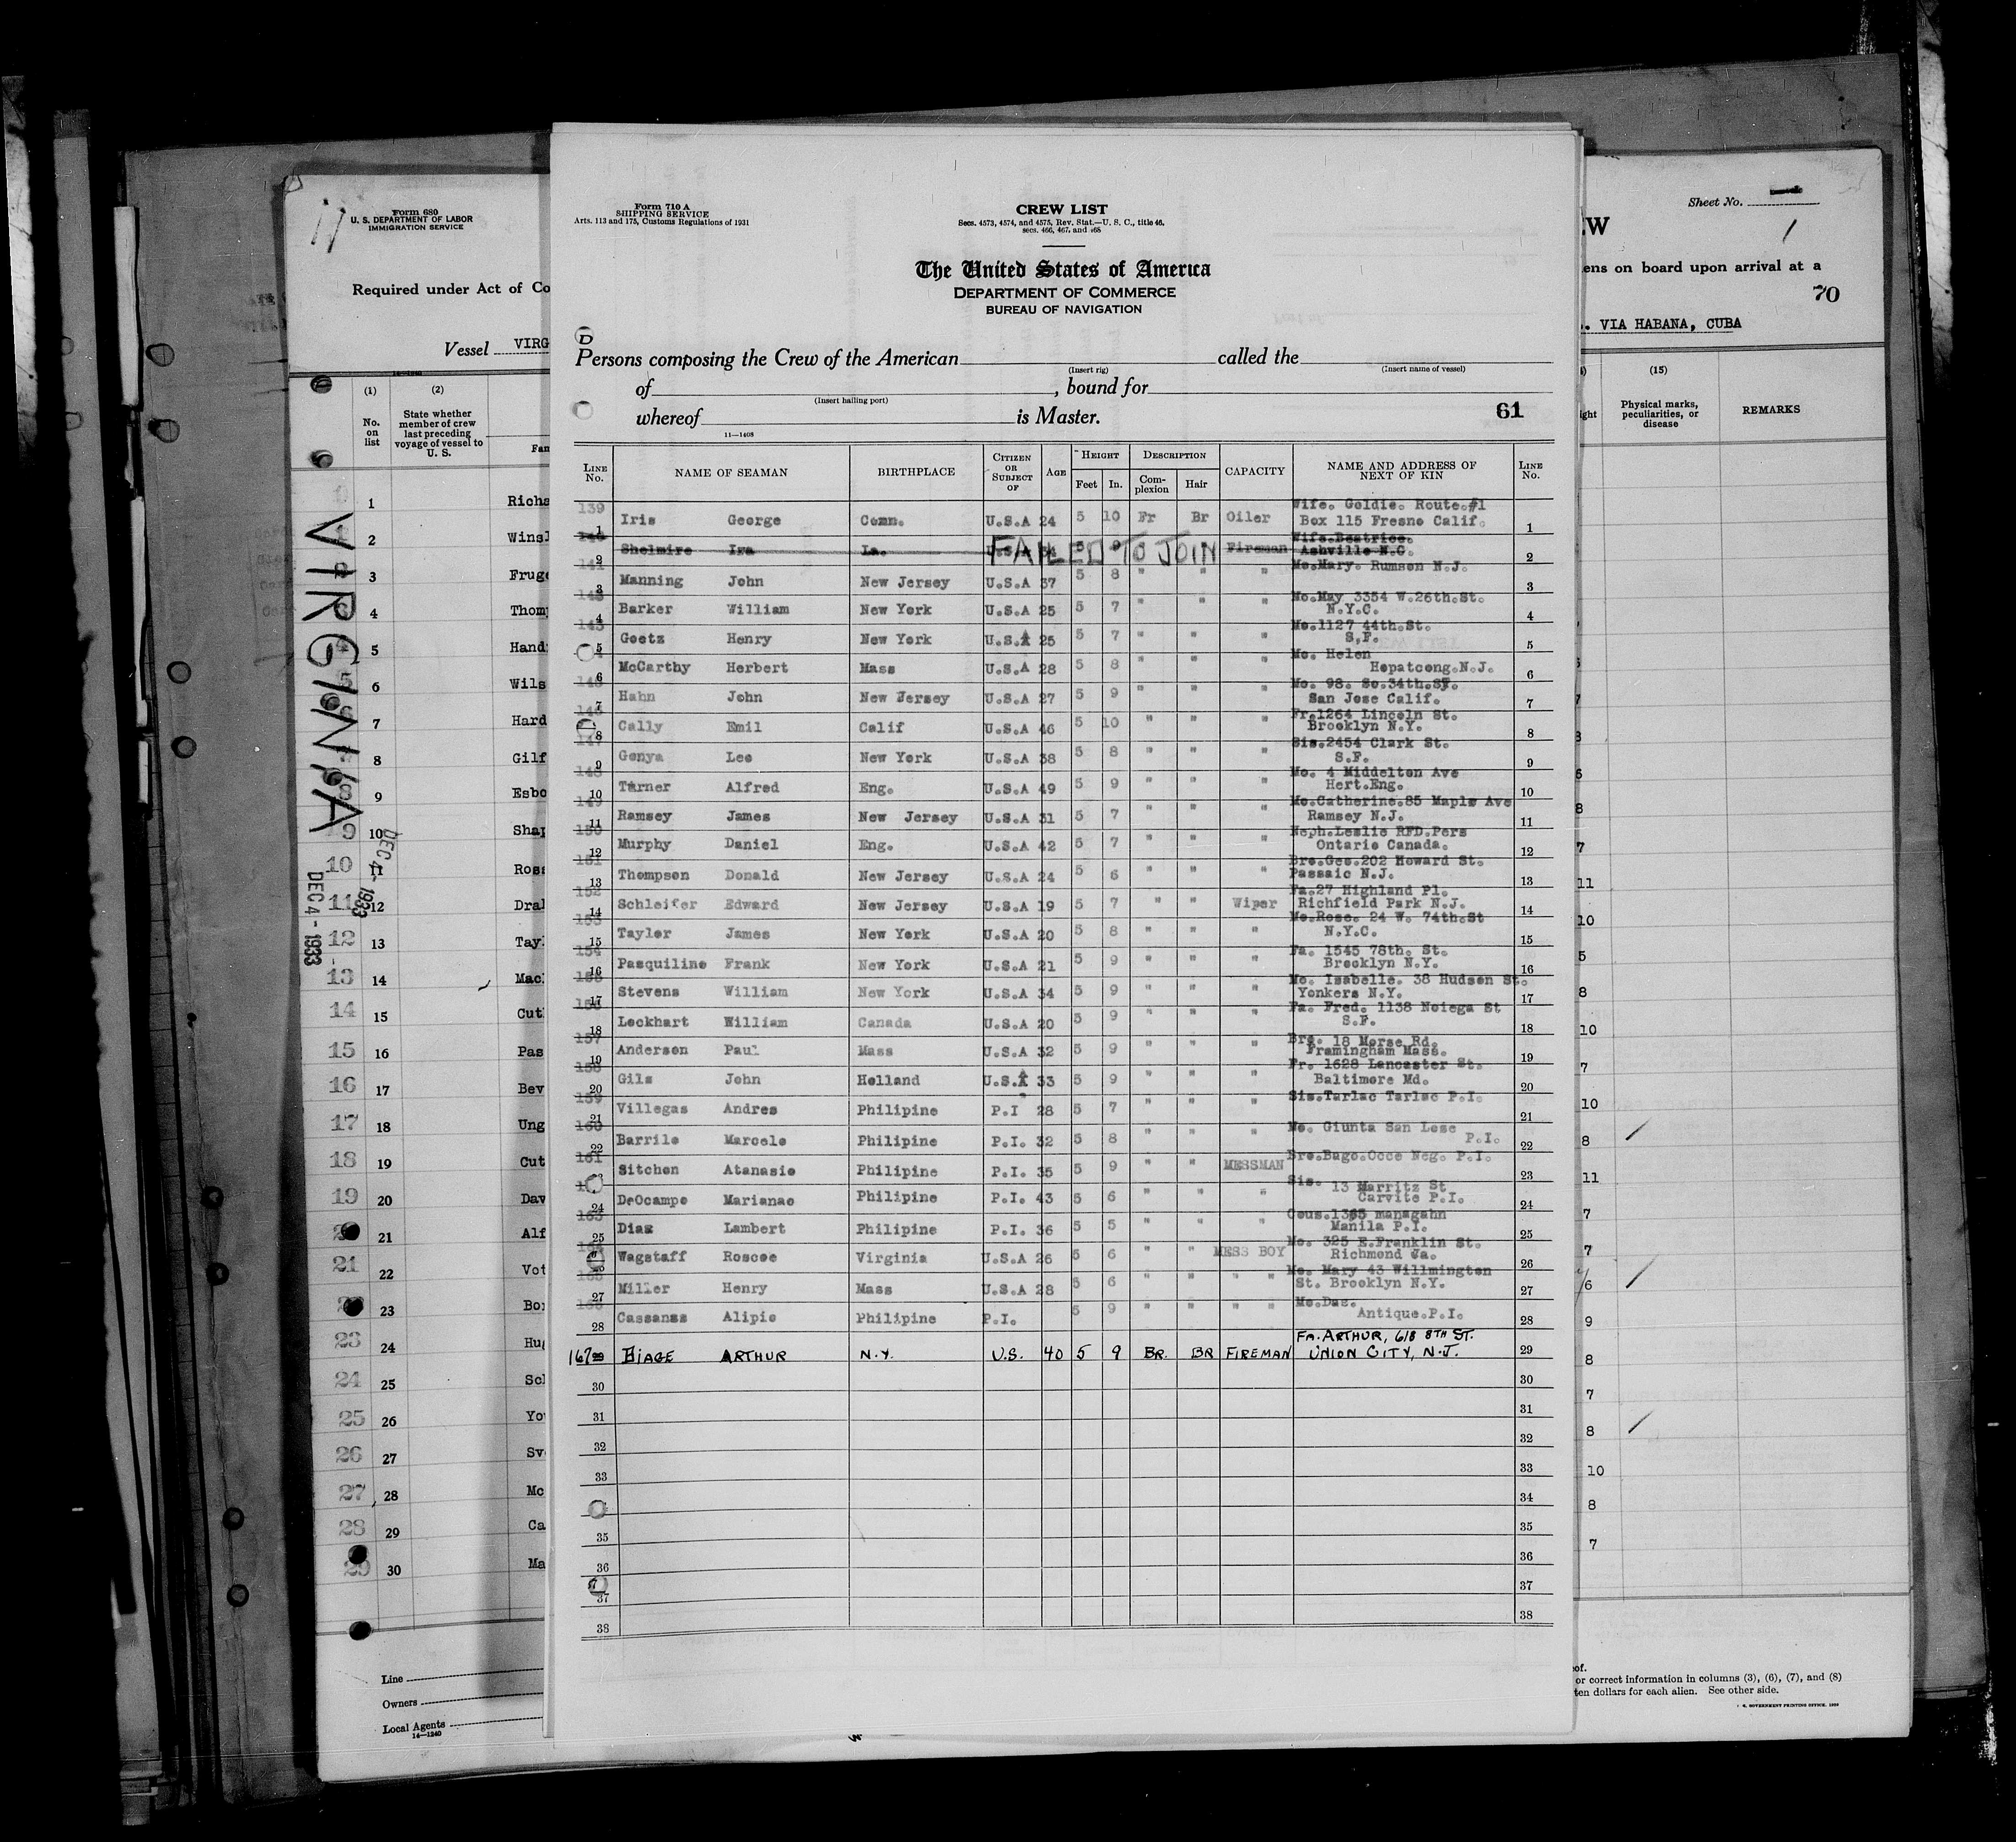 Form 710 A
SHIPPING SERVICE
Arts. 113 and 175, Customs Regulations of 1931
CREW LIST
Secs. 4573, 4574, and 4575, Rev. Stat.—U. S. C., title 46,
secs. 466, 467, and 468
The United States of America
DEPARTMENT OF COMMERCE
BUREAU OF NAVIGATION
D
Persons composing the Crew of the American called the
(Insert rig) (Insert name of vessel)
of , bound for
(Insert hailing port)
whereof is Master. 61
11—1408
LINE No. NAME OF SEAMAN BIRTHPLACE CITIZEN OR SUBJECT OF AGE HEIGHT Feet In. DESCRIPTION Complexion Hair CAPACITY NAME AND ADDRESS OF NEXT OF KIN LINE No.
139 1 Iris George Conn. U.S.A 24 5 10 Fr Br Oiler Wife. Goldie. Route.#1 Box 115 Fresno Calif. 1
2 Shelmire Ira La. FAILED TO JOIN Fireman Wife.Beatrice. Ashville N.C. 2
141 3 Manning John New Jersey U.S.A 37 5 8 " " " Mo.Mary. Rumson N.J. 3
4 Barker William New York U.S.A 25 5 7 " " " Mo.May 3354 W.26th.St. N.Y.C. 4
143 5 Goetz Henry New York U.S.A 25 5 7 " " " Mo.1127 44th.St. S.F. 5
6 McCarthy Herbert Mass U.S.A 28 5 8 " " " Mo. Helen Hopatcong.N.J. 6
145 7 Hahn John New Jersey U.S.A 27 5 9 " " " Mo. 98. So.34th.St. San Jose Calif. 7
146 8 Cally Emil Calif U.S.A 46 5 10 " " " Fr.1264 Lincoln St. Brooklyn N.Y. 8
147 9 Genya Leo New York U.S.A 38 5 8 " " " Sis.2454 Clark St. S.F. 9
148 10 Turner Alfred Eng. U.S.A 49 5 9 " " " Mo. 4 Middelton Ave Hert.Eng. 10
149 11 Ramsey James New Jersey U.S.A 31 5 7 " " " Mo.Catherine.85 Maple Ave Ramsey N.J. 11
150 12 Murphy Daniel Eng. U.S.A 42 5 7 " " " Neph.Leslie RFD.Pers Ontario Canada. 12
151 13 Thompson Donald New Jersey U.S.A 24 5 6 " " " Bro.Geo.202 Howard St. Passaic N.J. 13
152 14 Schleifer Edward New Jersey U.S.A 19 5 7 " " Wiper Fa.27 Highland Pl. Richfield Park N.J. 14
153 15 Taylor James New York U.S.A 20 5 8 " " " Mo.Rose. 24 W. 74th.St N.Y.C. 15
154 16 Pasquiline Frank New York U.S.A 21 5 9 " " " Fa. 1545 78th. St. Brooklyn N.Y. 16
155 17 Stevens William New York U.S.A 34 5 9 " " " Mo. Isabelle. 38 Hudson St. Yonkers N.Y. 17
156 18 Lockhart William Canada U.S.A 20 5 9 " " " Fa. Fred. 1138 Noiega St S.F. 18
157 19 Anderson Paul Mass U.S.A 32 5 9 " " " Bro. 18 Morse Rd. Framingham Mass. 19
158 20 Gils John Holland U.S.A 33 5 9 " " " Fr. 1628 Lancaster St. Baltimore Md. 20
159 21 Villegas Andres Philipine P.I 28 5 7 " " " Sis.Tarlac Tarlac P.I. 21
160 22 Barrile Marcelo Philipine P.I. 32 5 8 " " " Mo. Giunta San Lose P.I. 22
161 Sitchon Atanasio Philipine P.I. 35 5 9 " " MESSMAN Bro.Bago.Occe Neg. P.I. 23
24 DeOcampo Marianao Philipine P.I. 43 5 6 " " " Sis. 13 Marritz St Carvite P.I. 24
163 25 Dias Lambert Philipine P.I. 36 5 5 " " " Cous.1365 managahn Manila P.I. 25
164 26 Wagstaff Roscoe Virginia U.S.A 26 5 6 " " MESS BOY Mo. 325 E.Franklin St. Richmond Va. 26
165 27 Miller Henry Mass U.S.A 28 5 6 " " " " Mo. Mary 43 Willmington St. Brooklyn N.Y. 27
166 28 Cassanas Alipio Philipine P.I. 5 9 " " " " Mo.Dao. Antique.P.I. 28
167 29 BIAGE ARTHUR N.Y. U.S. 40 5 9 BR. BR FIREMAN FA. ARTHUR, 618 8TH ST. UNION CITY, N.J. 29
30 30
31 31
32 32
33 33
34
35 35
36 36
37 37
38 38
11
Form 680
U. S. DEPARTMENT OF LABOR
IMMIGRATION SERVICE
Required under Act of Co
Vessel VIRG
(1) (2)
No. on list
State whether member of crew last preceding voyage of vessel to U. S.
Fam
VIRGINIA
DEC 4 - 1933
DEC 4 - 1933
1 Richa
2 Winsl
3 Fruge
4 Thom
5 Hand
6 Wils
7 Hard
8 Gilf
8 9 Esbo
9 10 Shap
10 11 Ross
11 12 Dral
12 13 Tayl
13 14 Macl
14 15 Cut
15 16 Pas
16 17 Bev
17 18 Ung
18 19 Cut
19 20 Dav
21 Alf
21 22 Vot
23 Bor
23 24 Hug
24 25 Scl
25 26 You
26 27 Sv
27 28 Mc
28 29 Ca
29 30 Ma
Line
Owners
Local Agents
14—1240
Sheet No.
1
EW
ens on board upon arrival at a
70
. VIA HABANA, CUBA
(15)
ight
Physical marks, peculiarities, or disease
REMARKS
8
7
11
10
5
8
10
7
10
8
11
7
7
6
9
8
7
8
10
8
7
of.
or correct information in columns (3), (6), (7), and (8)
ten dollars for each alien. See other side.
GOVERNMENT PRINTING OFFICE